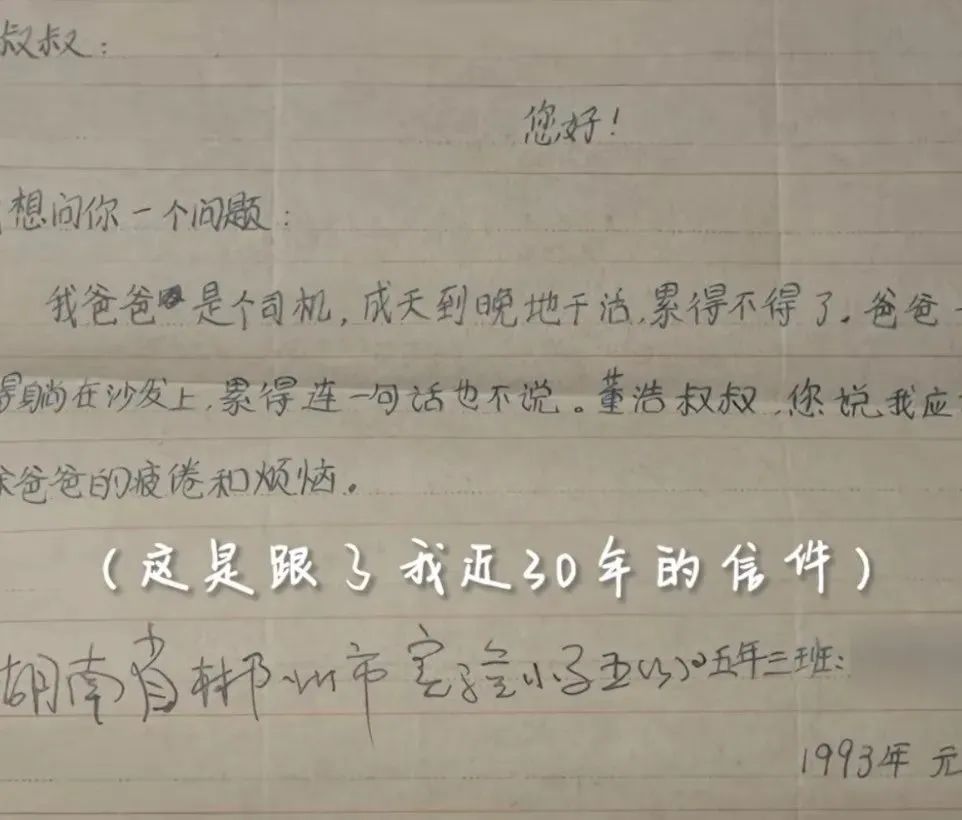 叔叔:
您好!
想问你一个问题:
我爸爸是个司机,成天到晚地干活,累得不得了。爸爸
得躺在沙发上,累得连一句话也不说。董浩叔叔,您说我应
爸爸的疲倦和烦恼。
(这是跟了我近30年的信件)
湖南省郴州市实验小学五(3)五年三班:
1993年 元